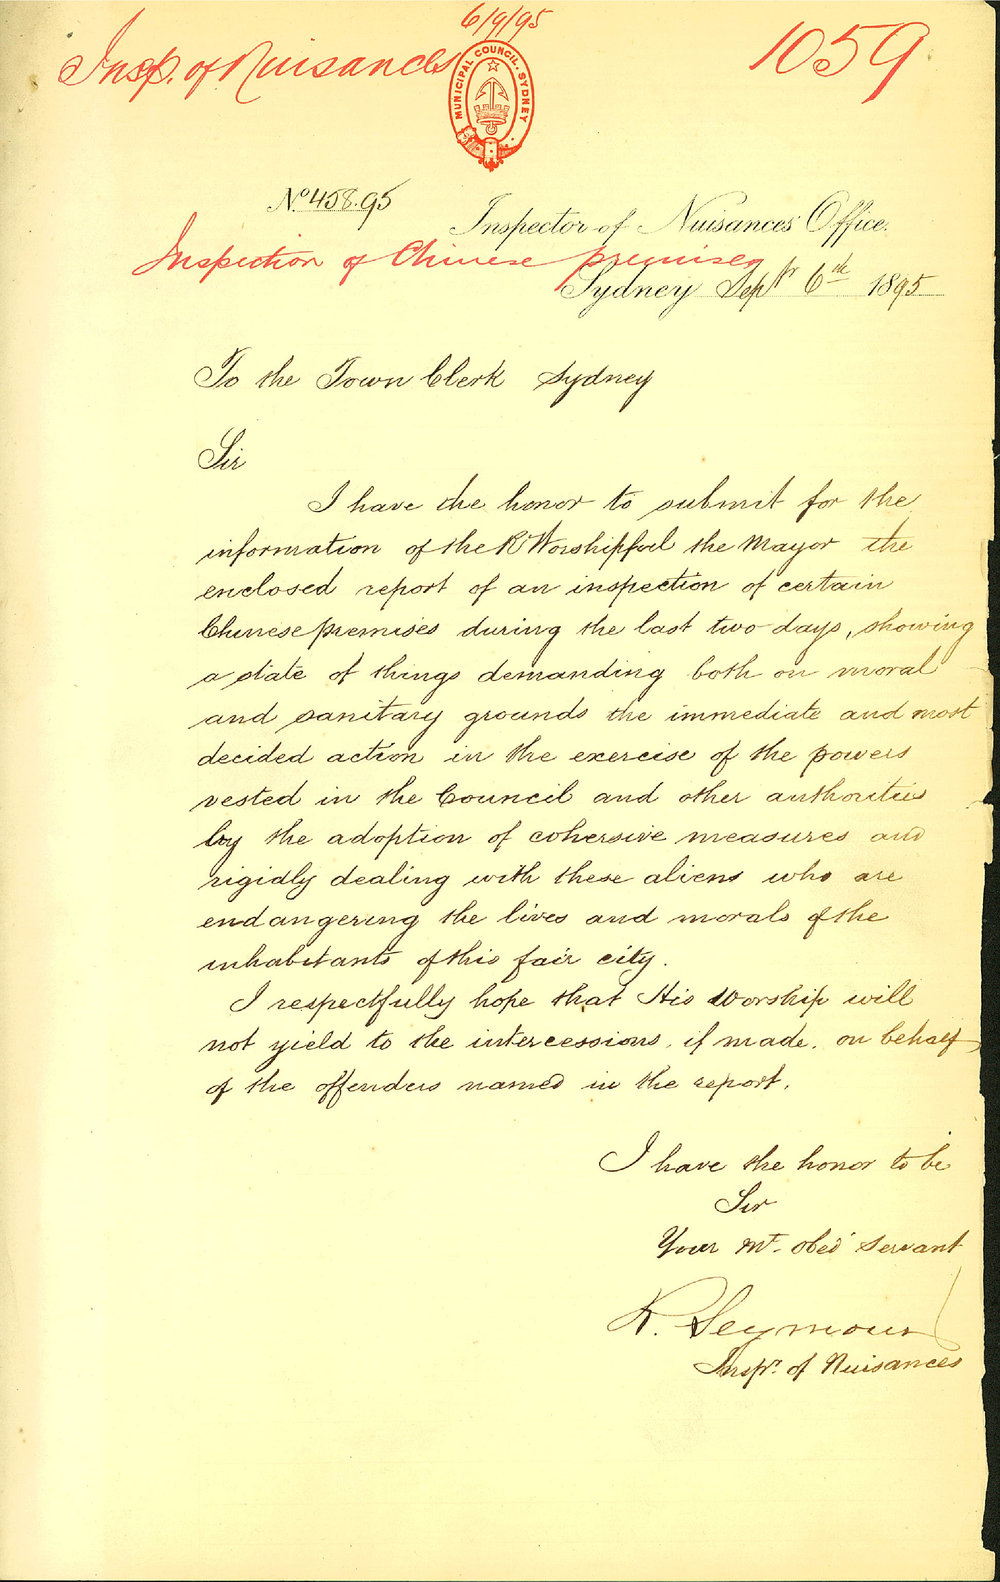 6/9/95
Insp. of Nuisances
1059
MUNICIPAL COUNCIL. SYDNEY
No 458.95
Inspector of Nuisances Office.
Inspection of Chinese premises
Sydney Septr 6th 1895
To the Town Clerk Sydney
Sir
I have the honor to submit for the
information of the Rt Worshipful the Mayor the
enclosed report of an inspection of certain
Chinese premises during the last two days, showing
a state of things demanding both on moral
and sanitary grounds the immediate and most
decided action in the exercise of the powers
vested in the Council and other authorities
by the adoption of cohersive measures and
rigidly dealing with these aliens who are
endangering the lives and morals of the
inhabitants of this fair city.
I respectfully hope that His Worship will
not yield to the intercessions, if made, on behalf
of the offenders named in the report.
I have the honor to be
Sir
Your Mt. obed servant
R. Seymour
Inspr. of Nuisances